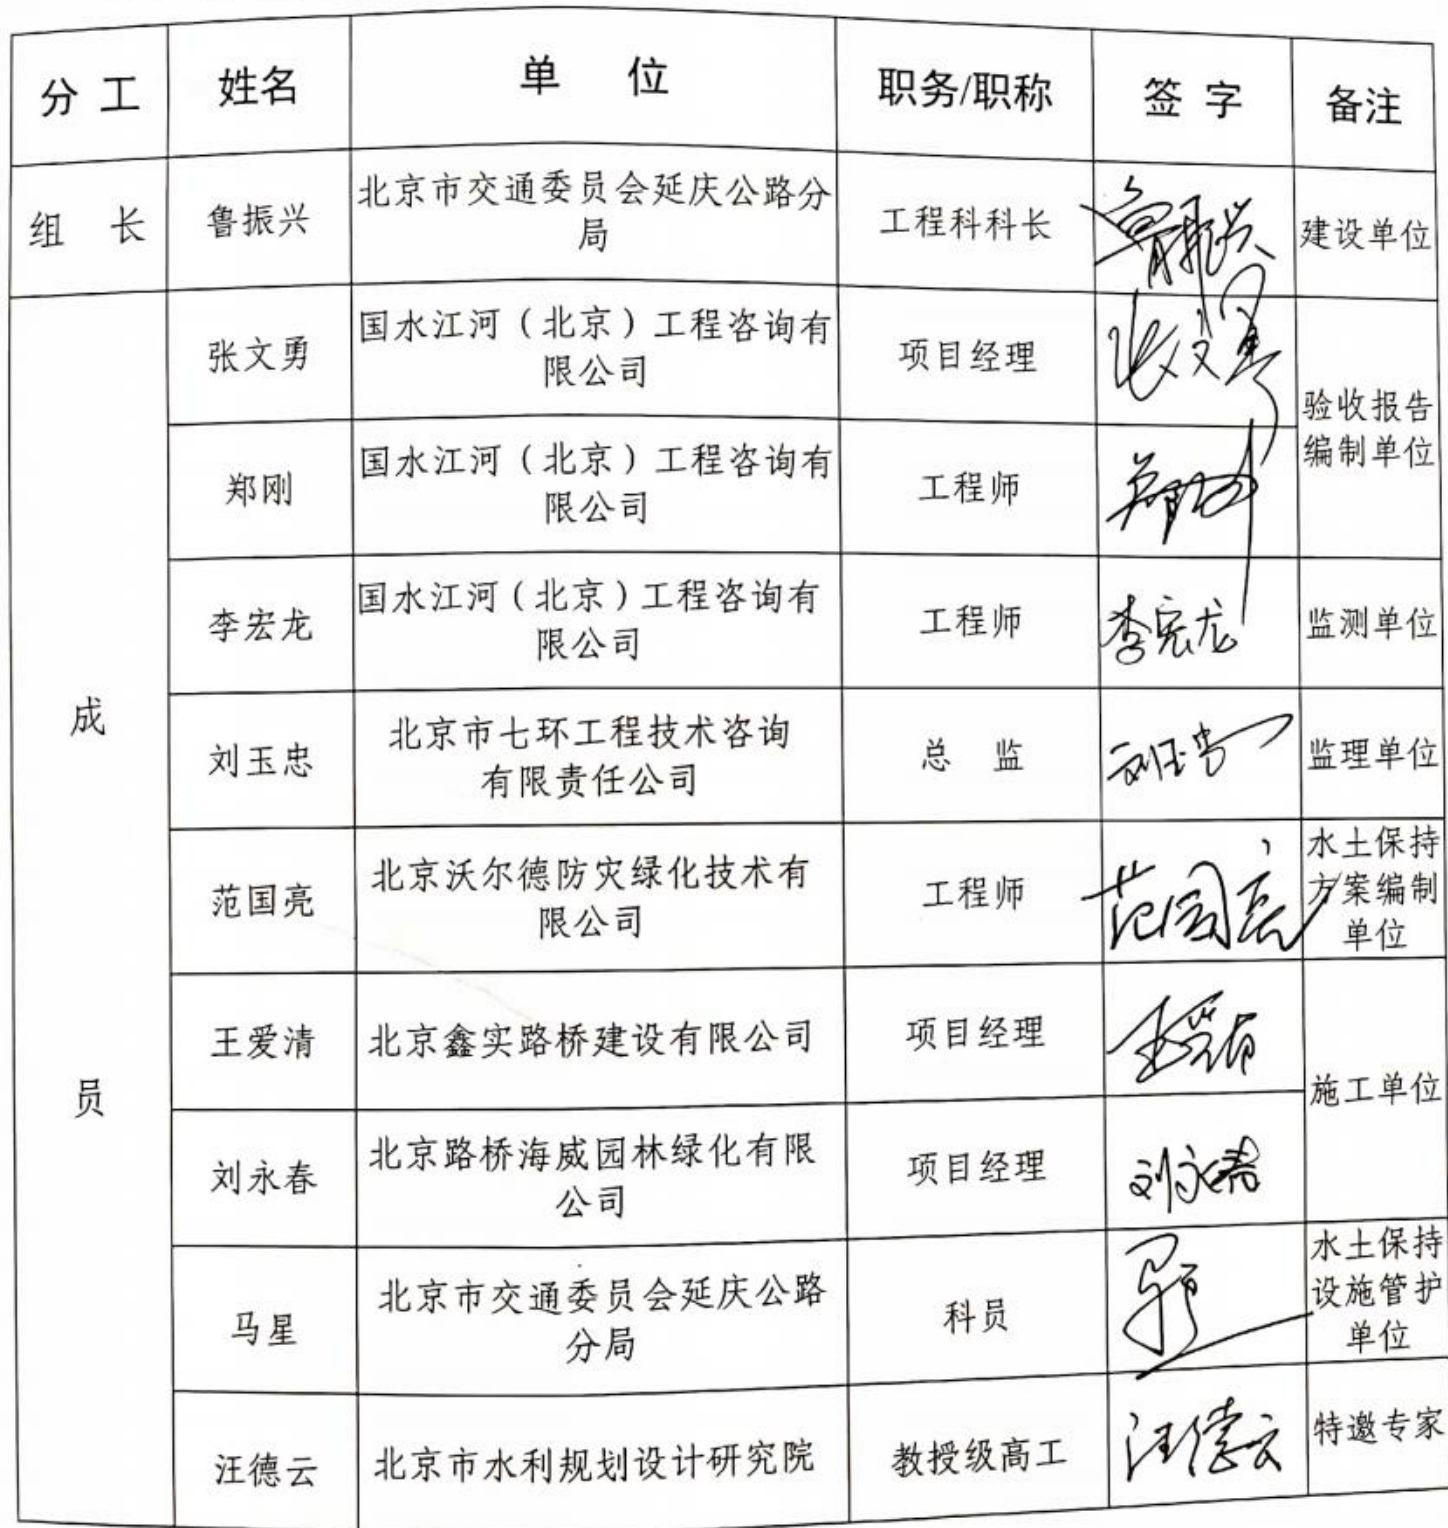 分工 姓名 单位 职务/职称 签字 备注
组长 鲁振兴 北京市交通委员会延庆公路分
局 工程科科长 鲁振兴 建设单位
成员
张文勇 国水江河（北京）工程咨询有
限公司 项目经理 张文勇 验收报告
编制单位
郑刚 国水江河（北京）工程咨询有
限公司 工程师
李宏龙 国水江河（北京）工程咨询有
限公司 工程师 李宏龙 监测单位
刘玉忠 北京市七环工程技术咨询
有限责任公司 总监 刘玉忠 监理单位
范国亮 北京沃尔德防灾绿化技术有
限公司 工程师 范国亮 水土保持
方案编制
单位
王爱清 北京鑫实路桥建设有限公司 项目经理 施工单位
刘永春 北京路桥海威园林绿化有限
公司 项目经理 刘永春
马星 北京市交通委员会延庆公路
分局 科员 水土保持
设施管护
单位
汪德云 北京市水利规划设计研究院 教授级高工 汪德云 特邀专家